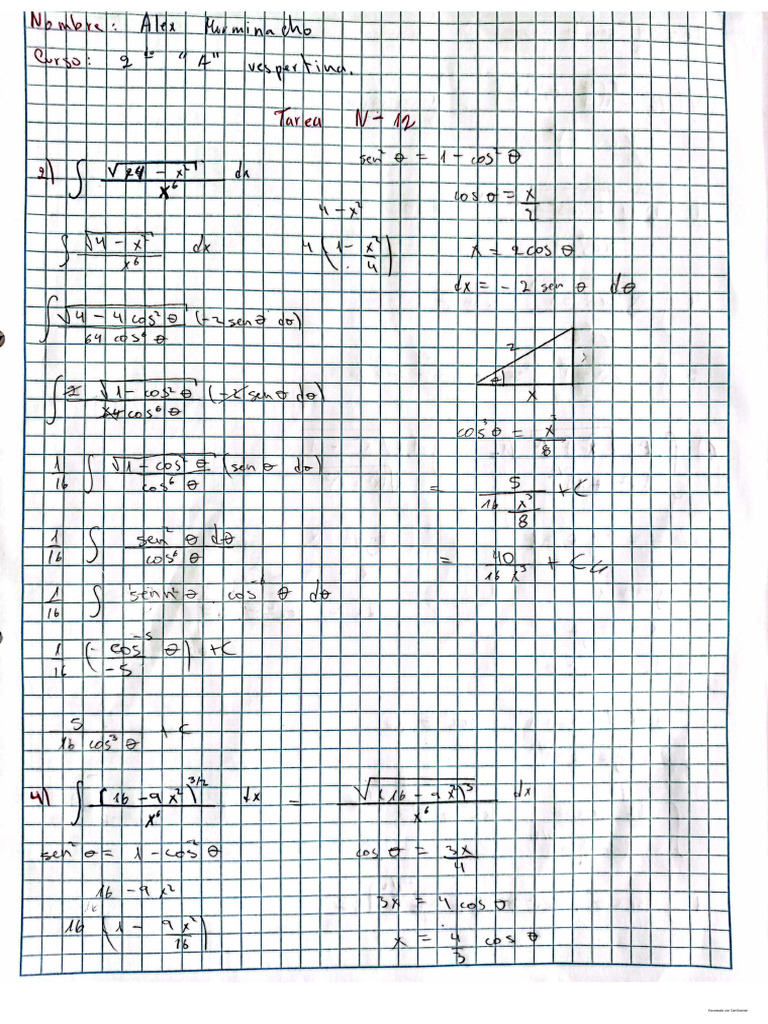 Nombre: Alex Murminacho
Curso: 2do "A" vespertina.
Tarea N-12
2) ∫ √(24 - x²) / x⁶ dx
sen² θ = 1 - cos² θ
cos θ = x/2
4 - x²
∫ √(4 - x²) / x⁶ dx
4 (1 - x²/4)
x = 2cos θ
dx = - 2 sen θ dθ
∫ √(4 - 4 cos² θ) / 64 cos⁶ θ (-2 senθ dθ)
2
θ
x
∫ 2 √(1 - cos² θ) / 64 cos⁶ θ (-2 sen θ dθ)
cos³ θ = x³/8
1/16 ∫ √(1 - cos² θ) / cos⁶ θ (sen θ dθ)
= 5 / (16 x³/8) + C
1/16 ∫ sen² θ dθ / cos⁶ θ
= 40 / 16 x³ + C
1/16 ∫ senn² θ cos⁻⁶ θ dθ
1/16 (- cos⁻⁵ θ / -5) + C
5 / 16 cos³ θ + C
4) ∫ (16 - 9x²)^3/2 / x⁶ dx = √((16 - 9x²)³) / x⁶ dx
sen² θ = 1 - cos² θ
cos θ = 3x/4
16 - 9x²
3x = 4 cos θ
16 (1 - 9x²/16)
x = 4/3 cos θ
Escaneado con CamScanner